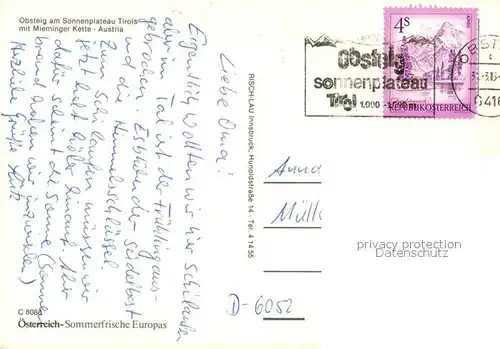 Obsteig am Sonnenplateau Tirols
mit Mieminger Kette - Austria
Liebe Oma!
Eigentlich wollten wir hier Schilaufen
aber im Tal ist der Frühling aus-
gebrochen. Es blühen der Seidelbast
und die Himmelsschlüssel.
Zum Schilaufen müssen wir
jetzt halt höher hinauf. Aber
dafür scheint die Sonne (Sonnen-
brand haben wir inzwischen)
Herzliche Grüße
C 8088
Österreich-Sommerfrische Europas
RISCH-LAU Innsbruck, Hunoldstraße 14 - Tel. 4 14 55
4S
REPUBLIK ÖSTERREICH
obsteig
sonnenplateau
Tirol 1.000 -
OBST
6416
Anna
Müll
D-6052
privacy protection
Datenschutz